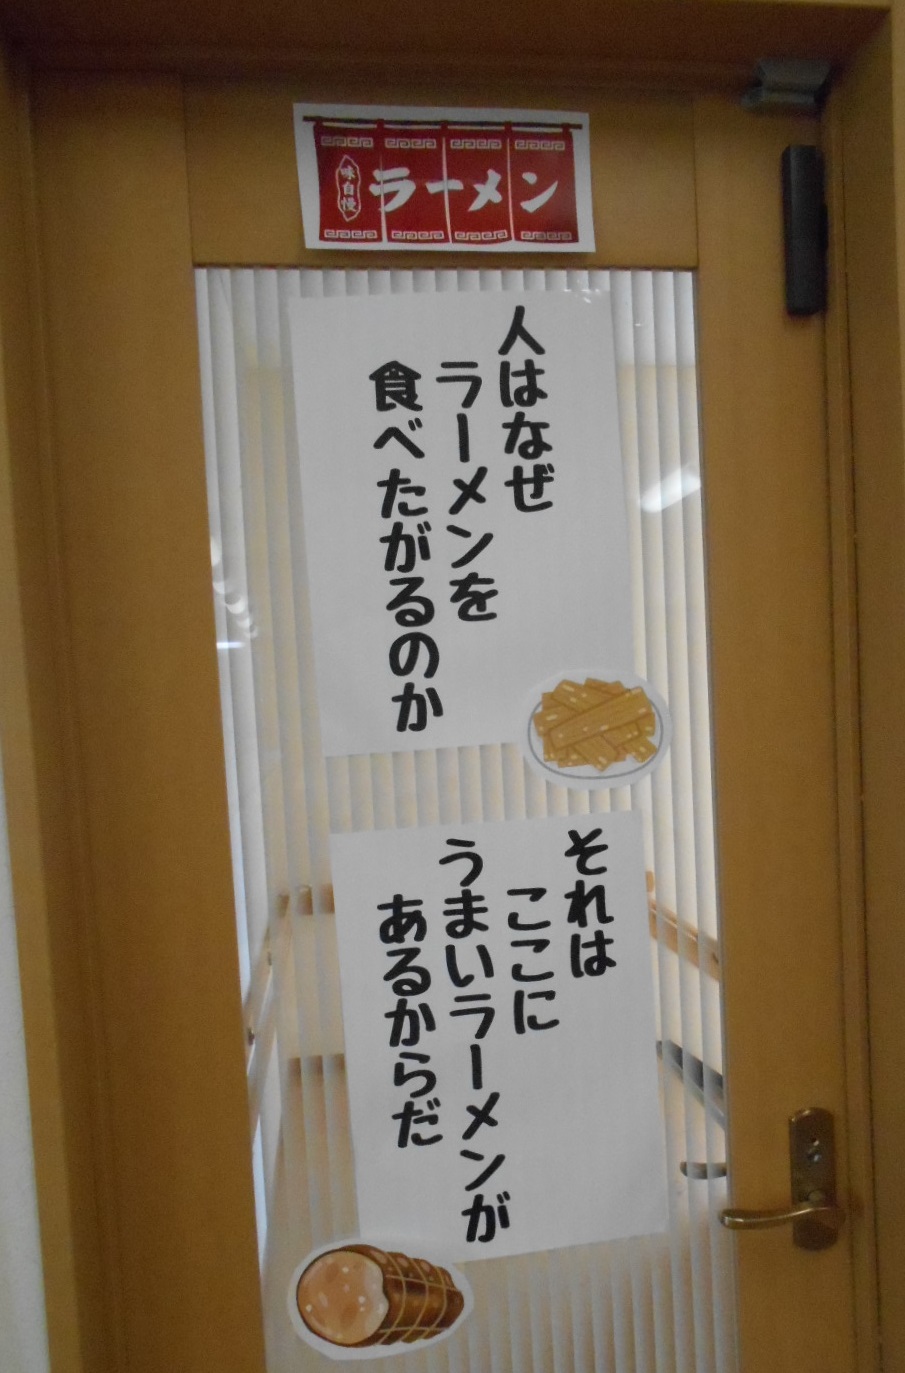 味自慢
ラーメン
人はなぜ
ラーメンを
食べたがるのか
それは
ここに
うまいラーメンが
あるからだ